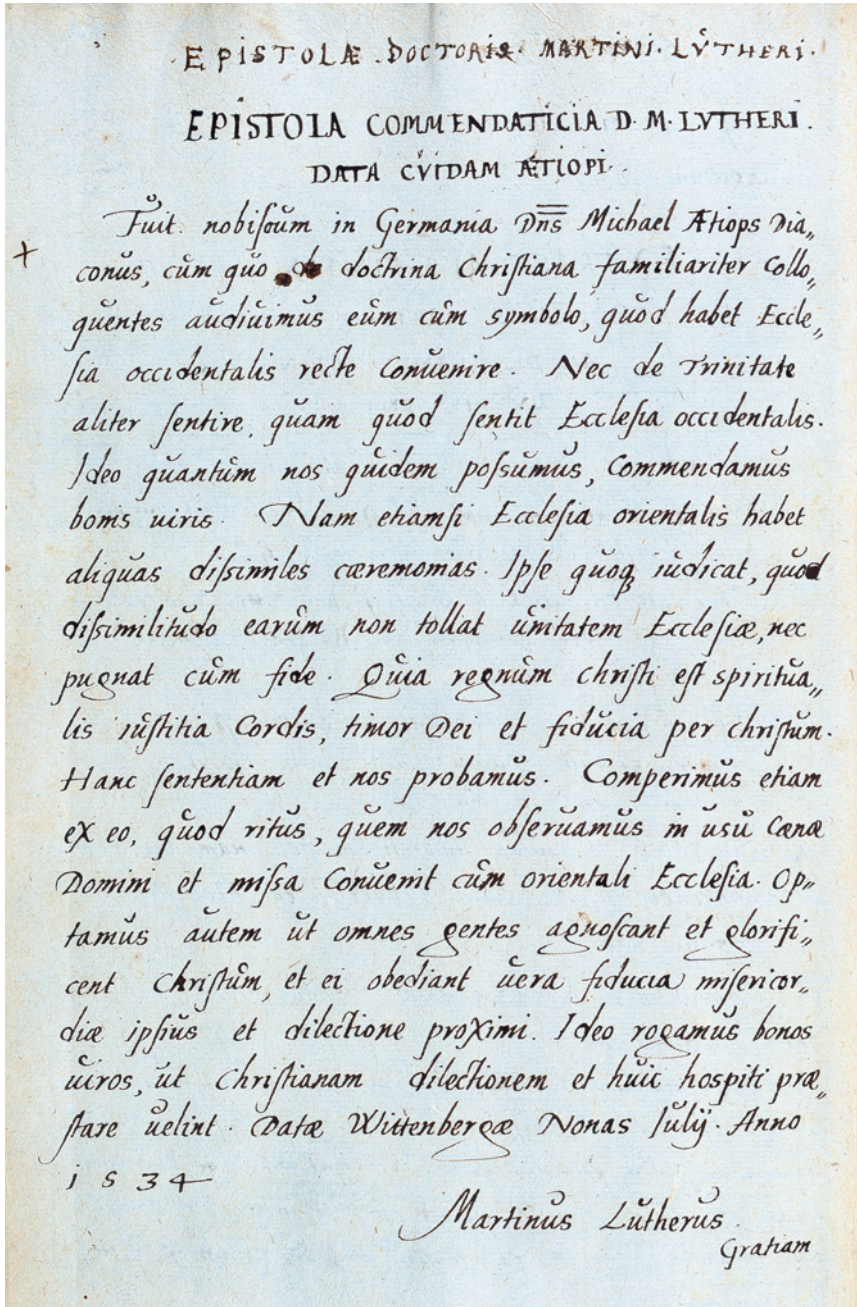 EPISTOLÆ DOCTORIS. MARTINI. LŬTHERI.
EPISTOLA COMMENDATICIA D. M. LVTHERI.
DATA CVIDAM ÆTIOPI.
Fuit nobiſcum in Germania Dn̄s Michael Ætiops Dia„
conus, cŭm quo de doctrina Chriſtiana familiariter Collo„
quentes aŭdiuimus eŭm cŭm symbolo, quŏd habet Eccle„
ſia occidentalis recte Conuenire. Nec de Trinitate
aliter ſentire, quam quŏd ſentit Eccleſia occidentalis.
Ideo quantŭm nos quidem poſsumus, Commendamus
bonis uiris. Nam etiamſi Eccleſia orientalis habet
aliquas diſsimiles cæremonias. Ipſe quoq; iŭdicat, quod
diſsimilitŭdo earŭm non tollat ŭnitatem Eccleſiæ, nec
pugnat cŭm fide. Qŭia regnŭm chriſti eſt spiritŭa„
lis iŭſtitia Cordis, timor Dei et fidŭcia per chriſtŭm.
Hanc ſententiam et nos probamus. Comperimŭs etiam
ex eo, quŏd ritŭs, quem nos obſeruamus in ŭsŭ Cœnæ
Domini et miſsa Conuenit cŭm orientali Eccleſia. Op„
tamŭs aŭtem ŭt omnes gentes agnoſcant et glorifi„
cent Chriſtŭm, et ei obediant ŭera fiducia miſericor„
diæ ipſiŭs et dilectione proximi. Ideo rogamus bonos
ŭiros, ŭt Chriſtianam dilectionem et hŭic hospiti præ„
ſtare ŭelint. Datæ Wittenbergæ Nonas Iŭlij. Anno
1534
Martinŭs Lŭtherŭs.
Gratiam